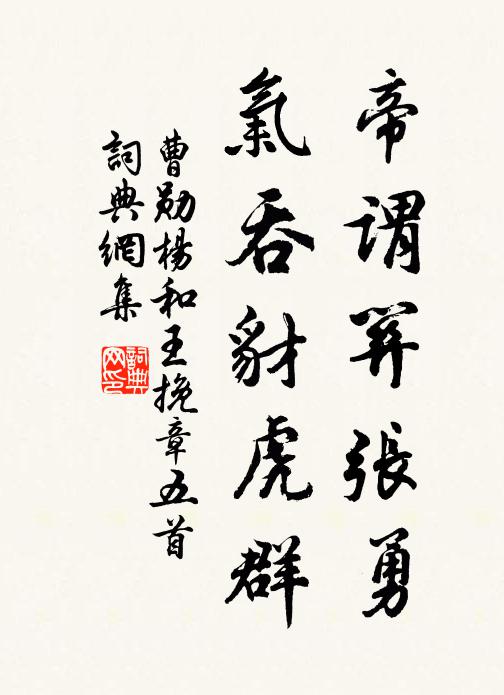 帝謂關張勇
氣吞豺虎群
曹勋楊和王挽章五首
詞典網集
詞典网印